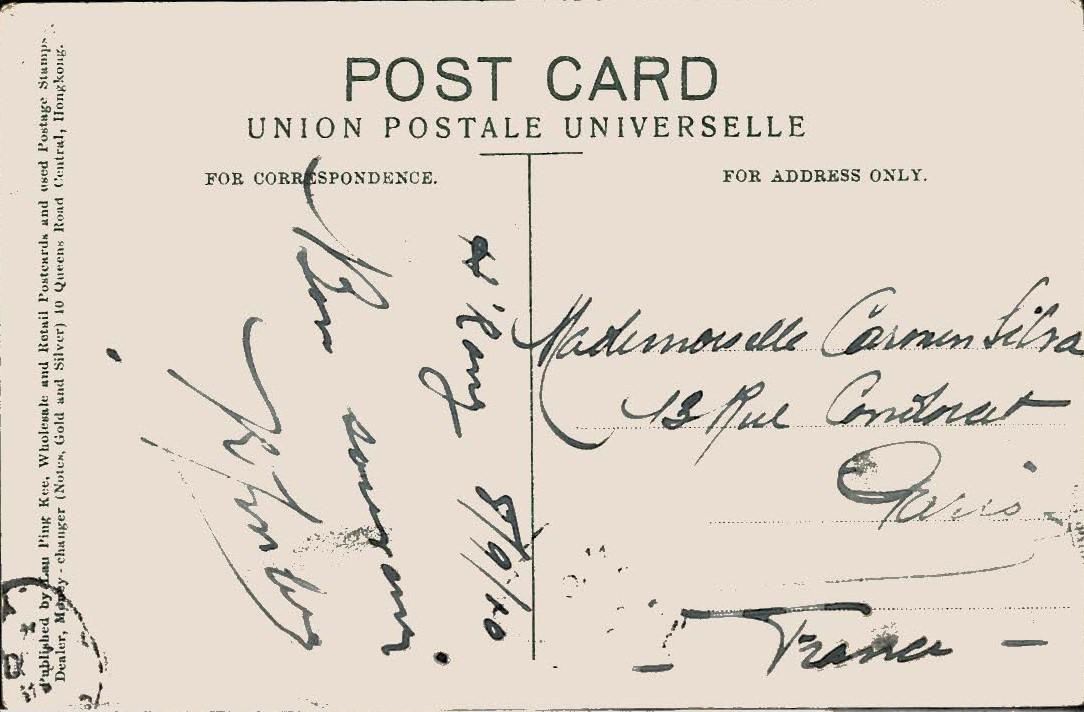 Published by Lau Ping Kee, Wholesale and Retail Postcards and used Postage Stamps
Dealer, Money-changer (Notes, Gold and Silver) 10 Queens Road Central, Hongkong.
POST CARD
UNION POSTALE UNIVERSELLE
FOR CORRESPONDENCE.
FOR ADDRESS ONLY.
H. Kong 5/9/10
Mademoiselle Carmen Silva
13 Rue Condorcet
Paris
France